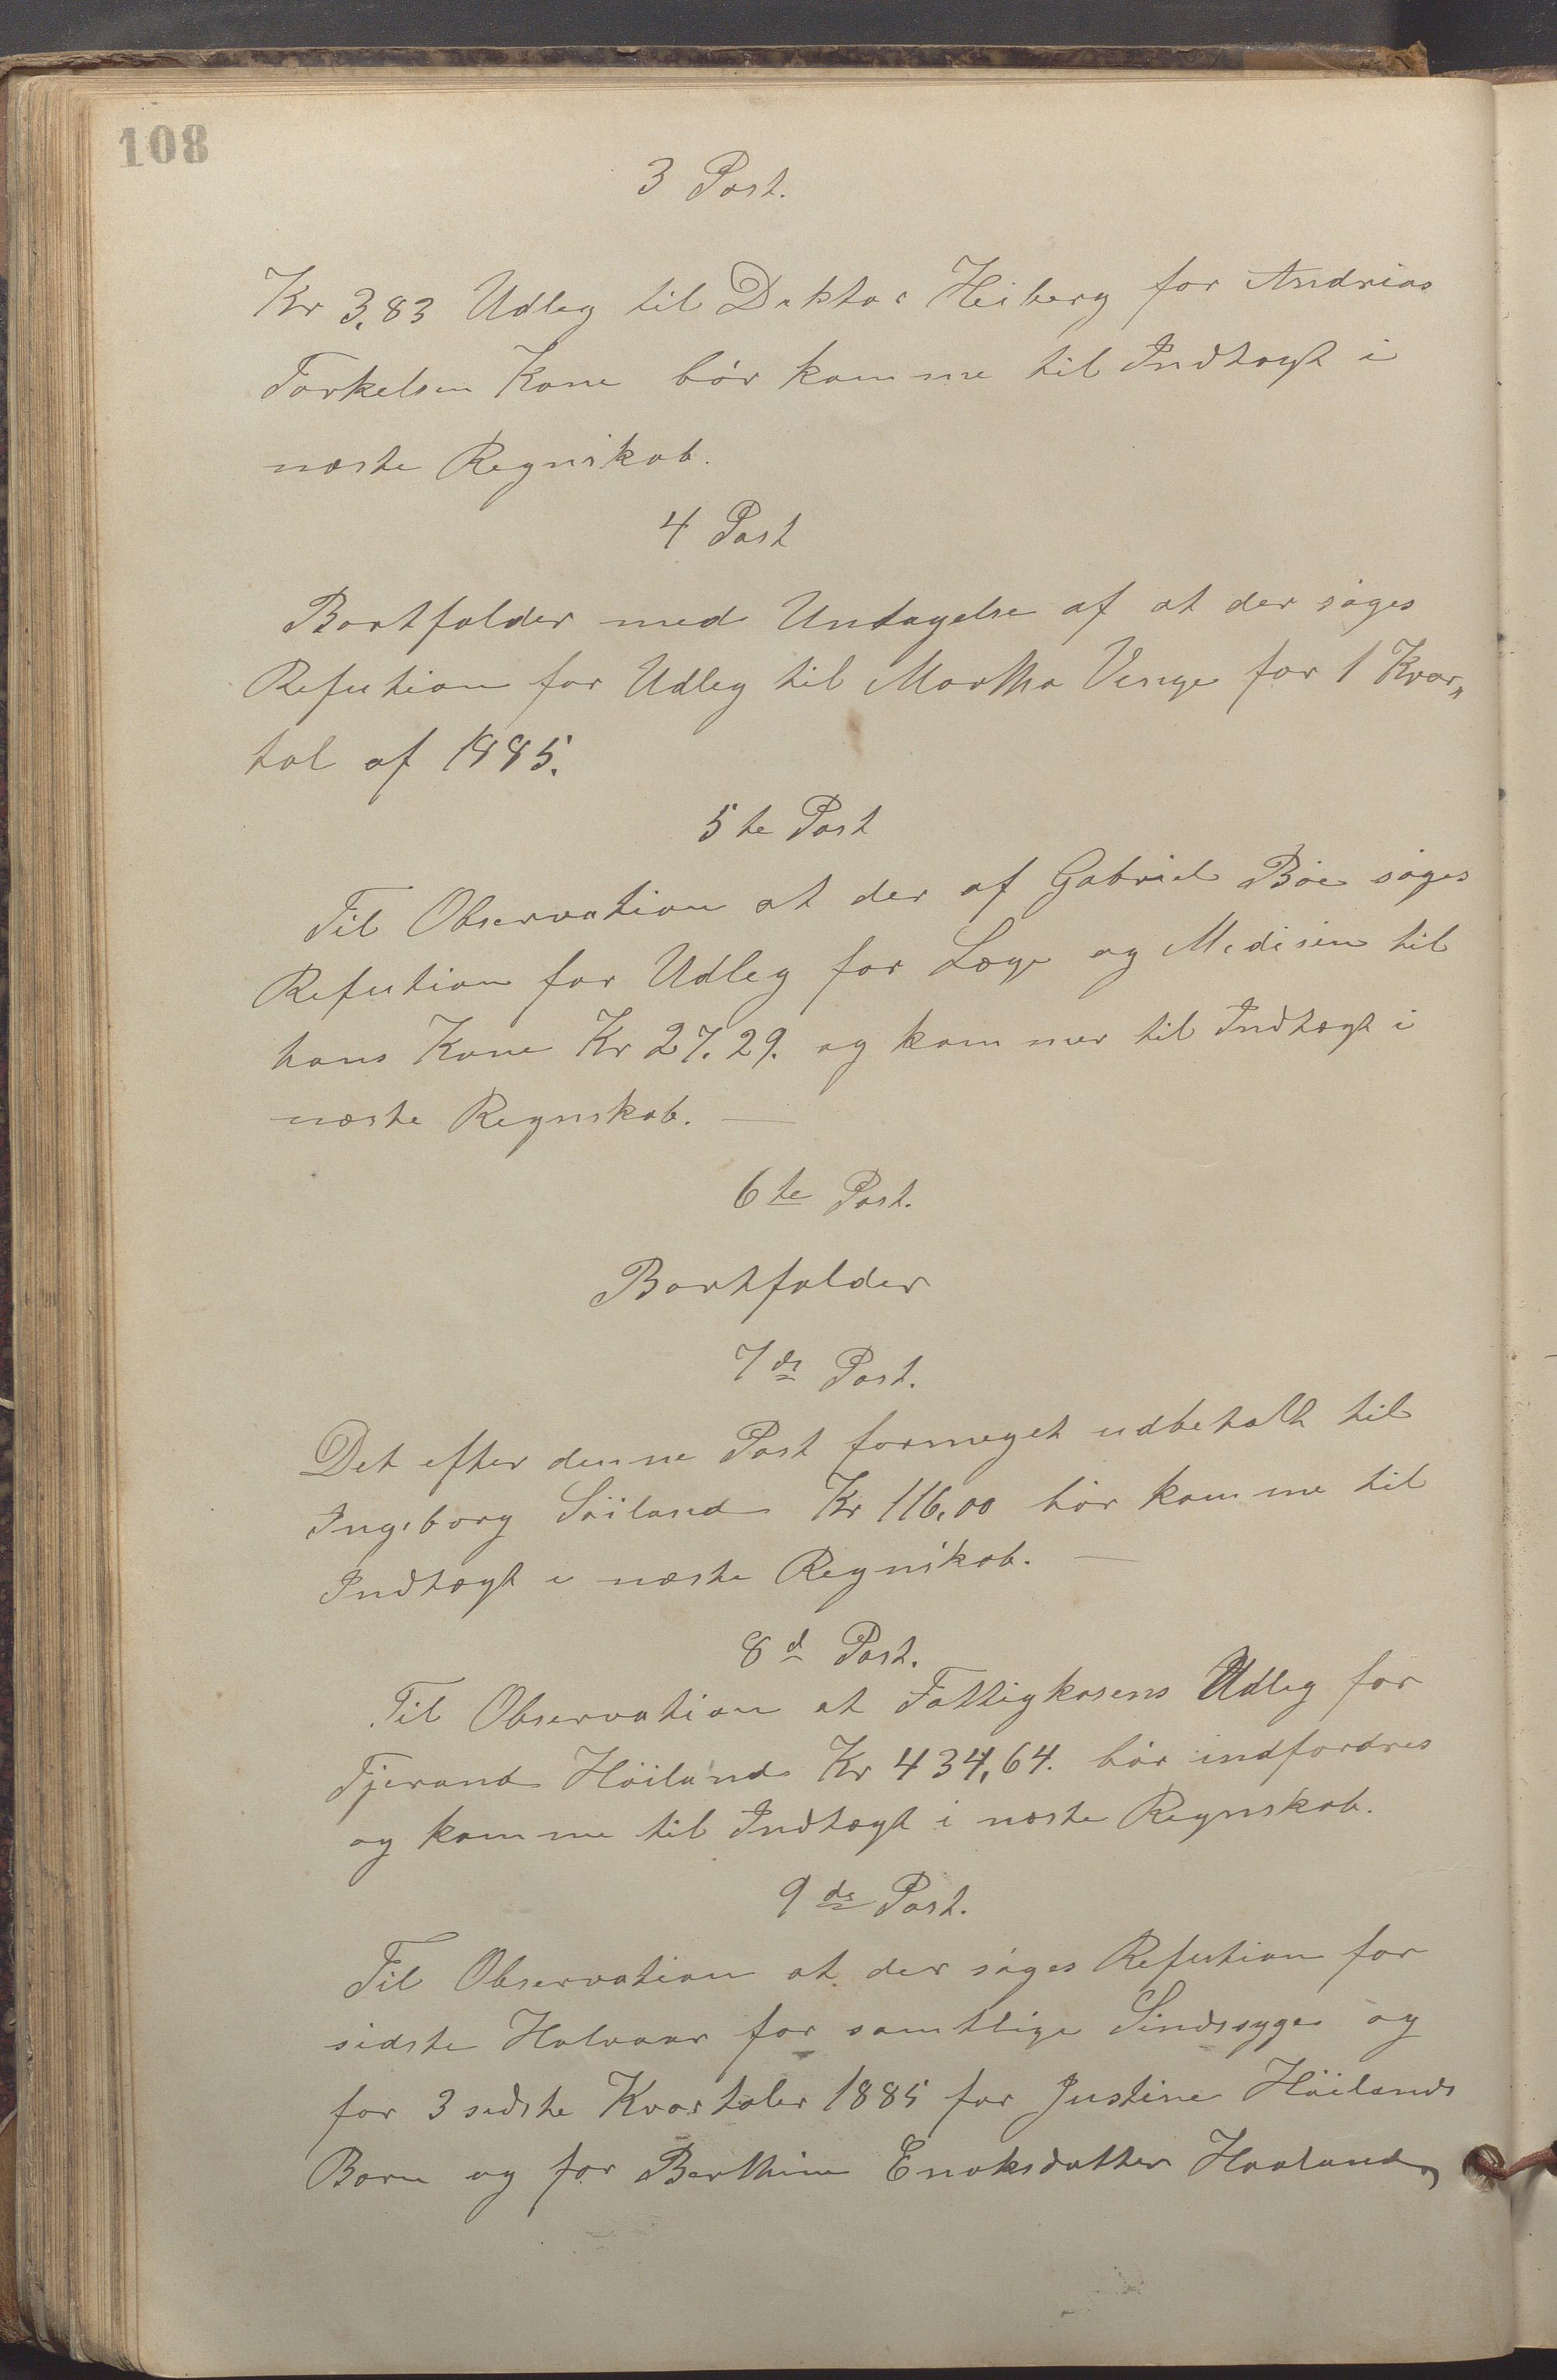 108
3 Post.
Kr 3,83 Udleg til Doktor Heiberg for Andrias
Torkelsen Kone bör komme til Indtægt i
næste Regnskab.
4 Post
Bortfalder med Undtagelse af at der söges
Refution for Udleg til Martha Venge for 1 Kvar„
tal af 1885.
5te Post
Til Observation at der af Gabriel Böe söges
Refution for Udleg for Læge og Medisin til
hans Kone Kr 27.29. og kommer til Indtægt i
næste Regnskab. —
6te Post.
Bortfalder
7de Post.
Det efter denne Post formeget udbetalt til
Ingeborg Söiland Kr 116,00 bör komme til
Indtægt i næste Regnskab. —
8d Post.
Til Observation at Fattigkasens Udleg for
Tjerand Höiland Kr 434,64. bör indfordres
og komme til Indtægt i næste Regnskab.
9de Post.
Til Observation at der söges Refution for
sidste Halvaar for samtlige Sindssyge og
for 3 sidste Kvartaler 1885 for Justine Höilands
Barn og for Berthine Enoksdatter Haaland,